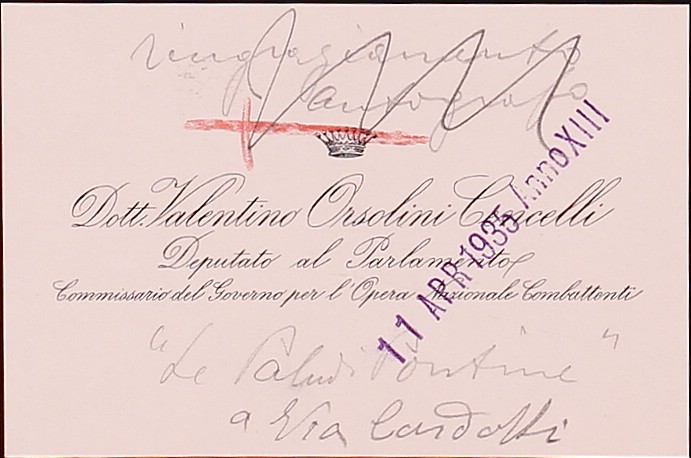 ringraziamento
autografo
Dott. Valentino Orsolini Cencelli
Deputato al Parlamento
Commissario del Governo per l'Opera Nazionale Combattenti
11 APR 1935 Anno XIII
"Le Paludi Pontine"
a Via